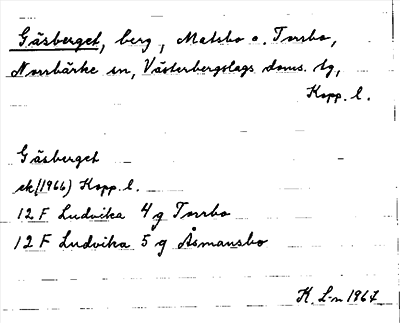 Gåsberget, berg, Matsbo o. Torrbo,
Norrbärke sn, Västerbergslags doms. tg,
Kopp. l.
Gåsberget
ek (1966) Kopp. l.
12 F Ludvika 4 g Torrbo
12 F Ludvika 5 g Åsmansbo
K. L-n 1967